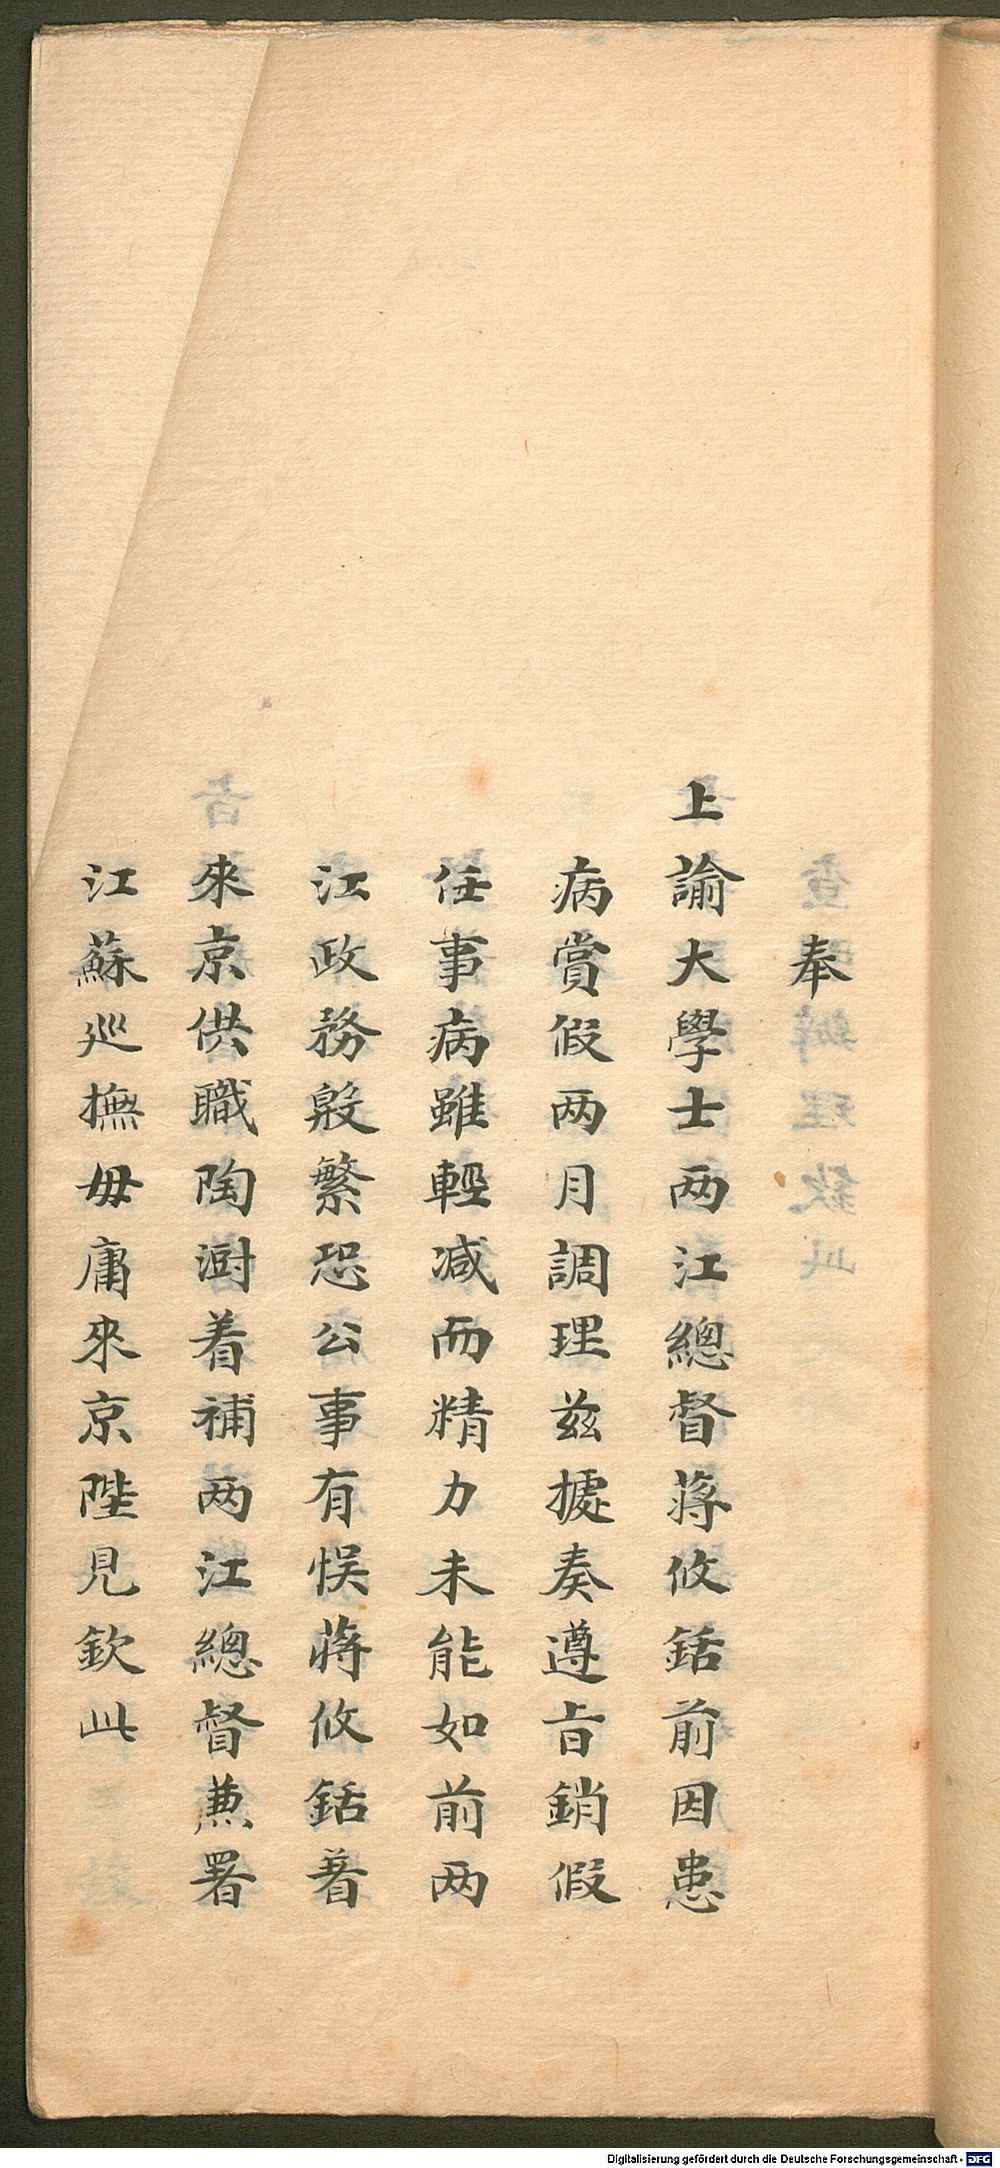 奉
上諭大學士两江總督蔣攸銛前因患
病賞假两月調理兹據奏遵旨銷假
任事病雖輕减而精力未能如前两
江政務殷繁恐公事有悞蔣攸銛着
來京供職陶澍着補两江總督兼署
江蘇巡撫毋庸來京陛見欽此
Digitalisierung gefördert durch die Deutsche Forschungsgemeinschaft - DFG